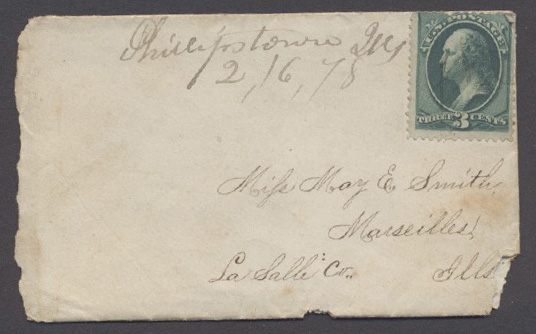 Phillipstown Ills
2,16,78
U.S. POSTAGE
THREE 3 CENTS
Miss May E Smith,
Marseilles,
La Salle Co. Ills